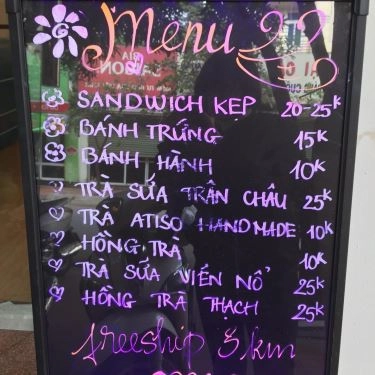 Menu
SANDWICH KẸP 20-25K
BÁNH TRỨNG 15K
BÁNH HÀNH 10K
TRÀ SỮA TRÂN CHÂU 25K
TRÀ ATISO HANDMADE 10K
HỒNG TRÀ 10K
TRÀ SỮA VIÊN NỔ 25K
HỒNG TRÀ THẠCH 25K
freeship 3km